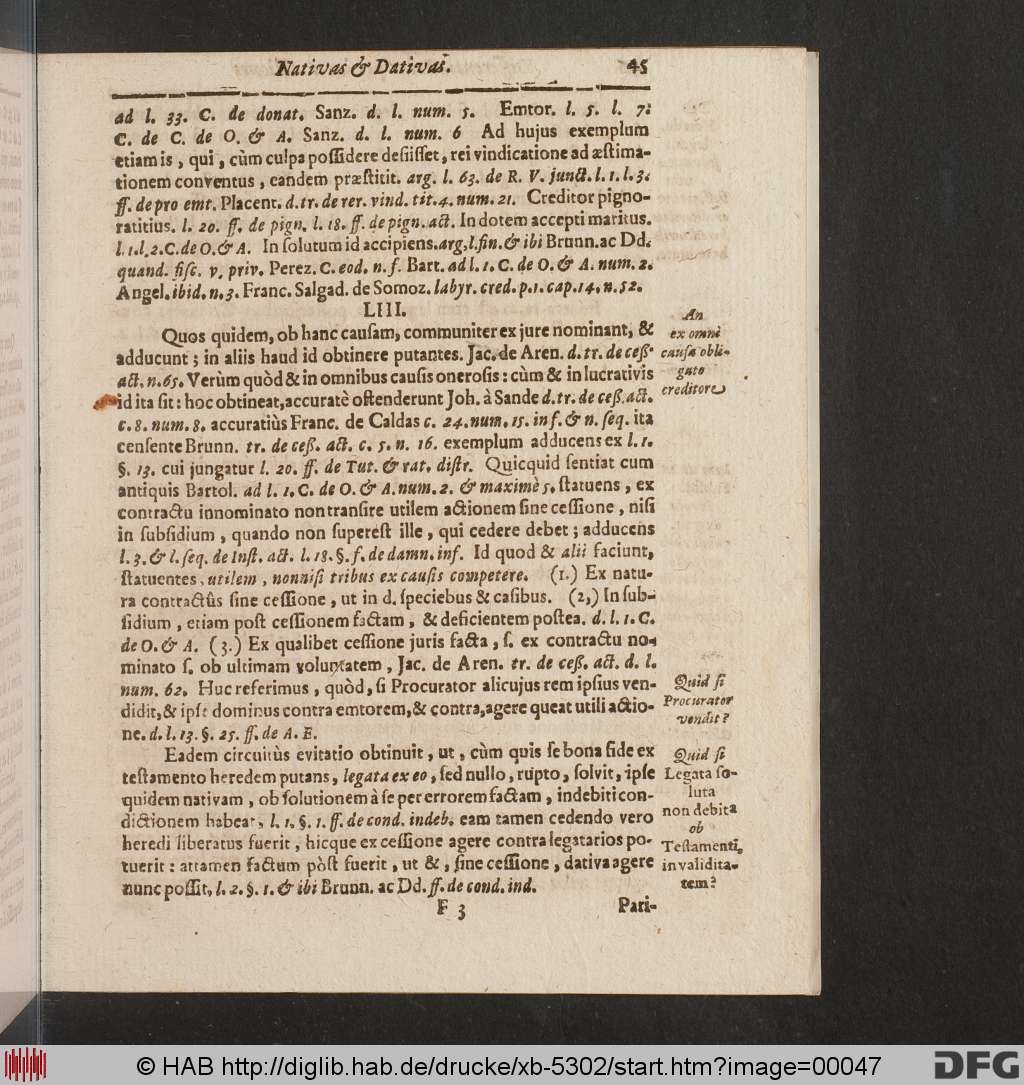 Nativas & Dativas. 45
ad l. 33. C. de donat. Sanz. d. l. num. 5. Emtor. l. 5. l. 7.
C. de C. de O. & A. Sanz. d. l. num. 6 Ad hujus exemplum
etiam is, qui, cùm culpa poſſidere deſiiſſet, rei vindicatione ad æſtima-
tionem conventus, eandem præſtitit. arg. l. 63. de R. V. junct. l. 1. l. 3.
ff. de pro emt. Placent. d. tr. de rer. vind. tit. 4. num. 21. Creditor pigno-
ratitius. l. 20. ff. de pign. l. 18. ff. de pign. act. In dotem accepti maritus.
l. 1. l. 2. C. de O. & A. In ſolutum id accipiens. arg. l. fin. & ibi Brunn. ac Dd.
quand. fiſc. v. priv. Perez. C. eod. n. f. Bart. ad l. 1. C. de O. & A. num. 2.
Angel. ibid. n. 3. Franc. Salgad. de Somoz. labyr. cred. p. 1. cap. 14. n. 52.
LIII.
Quos quidem, ob hanc cauſam, communiter ex jure nominant, &
adducunt; in aliis haud id obtinere putantes. Jac. de Aren. d. tr. de ceſſ.
act. n. 65. Verùm quòd & in omnibus cauſis oneroſis: cùm & in lucrativis
id ita ſit: hoc obtineat, accuratè oſtenderunt Joh. à Sande d. tr. de ceſſ. act.
c. 8. num. 8. accuratiùs Franc. de Caldas c. 24. num. 15. inf. & n. ſeq. ita
cenſente Brunn. tr. de ceſſ. act. c. 5. n. 16. exemplum adducens ex l. 1.
§. 13. cui jungatur l. 20. ff. de Tut. & rat. diſtr. Quicquid ſentiat cum
antiquis Bartol. ad l. 1. C. de O. & A. num. 2. & maximè 5. ſtatuens, ex
contractu innominato non tranſire utilem actionem ſine ceſſione, niſi
in ſubſidium, quando non ſupereſt ille, qui cedere debet; adducens
l. 3. & l. ſeq. de Inſt. act. l. 18. §. f. de damn. inf. Id quod & alii faciunt,
ſtatuentes, utilem, nonniſi tribus ex cauſis competere. (1.) Ex natu-
ra contractûs ſine ceſſione, ut in d. ſpeciebus & caſibus. (2.) In ſub-
ſidium, etiam poſt ceſſionem factam, & deficientem poſtea. d. l. 1. C.
de O. & A. (3.) Ex qualibet ceſſione juris facta, ſ. ex contractu no-
minato ſ. ob ultimam voluntatem, Jac. de Aren. tr. de ceſſ. act. d. l.
num. 62. Huc referimus, quòd, ſi Procurator alicujus rem ipſius ven-
didit, & ipſe dominus contra emtorem, & contra, agere queat utili actio-
ne. d. l. 13. §. 25. ff. de A. E.
Eadem circuitùs evitatio obtinuit, ut, cùm quis ſe bona fide ex
teſtamento heredem putans, legata ex eo, ſed nullo, rupto, ſolvit, ipſe
quidem nativam, ob ſolutionem à ſe per errorem factam, indebiti con-
dictionem habeat, l. 1. §. 1. ff. de cond. indeb. eam tamen cedendo vero
heredi liberatus fuerit, hicque ex ceſſione agere contra legatarios po-
tuerit: attamen factum pòſt fuerit, ut &, ſine ceſſione, dativa agere
nunc poſſit, l. 2. §. 1. & ibi Brunn. ac Dd. ff. de cond. ind.
F 3 Pari-
An
ex omni
cauſa obli-
gato
creditore
Quid ſi
Procurator
vendit?
Quid ſi
Legata ſo-
luta
non debita
ob
Teſtamenti
invalidita-
tem?
© HAB http://diglib.hab.de/drucke/xb-5302/start.htm?image=00047
DFG